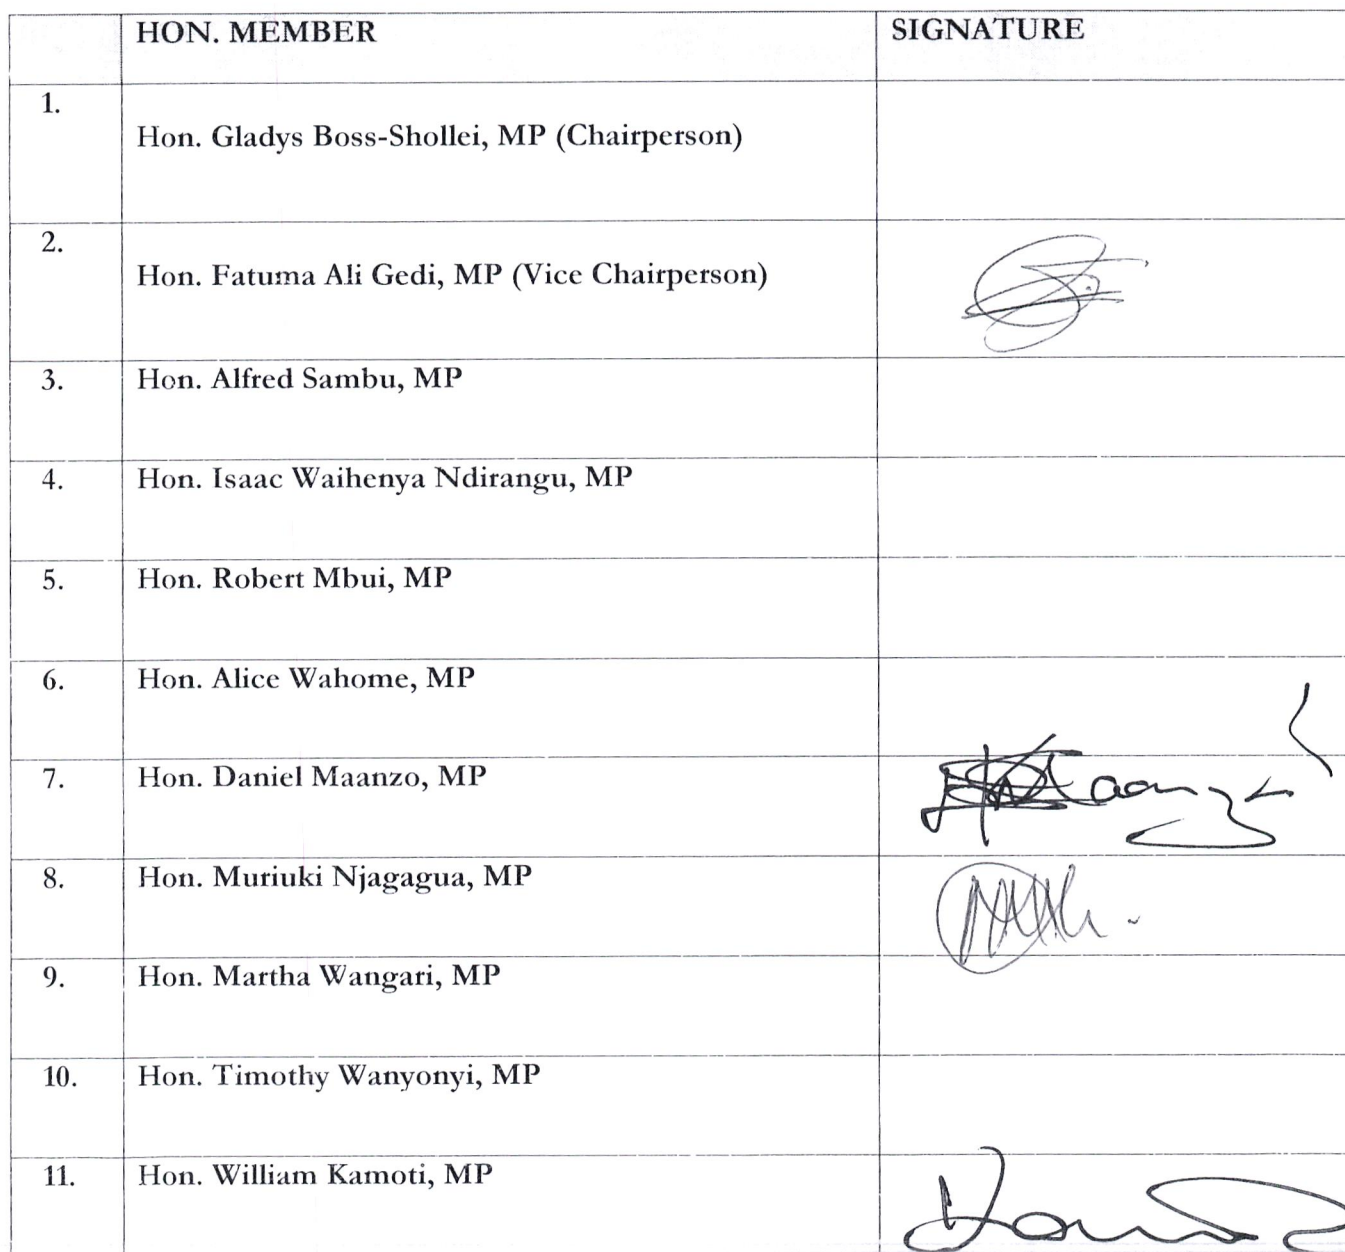 HON. MEMBER SIGNATURE
1. Hon. Gladys Boss-Shollei, MP (Chairperson)
2. Hon. Fatuma Ali Gedi, MP (Vice Chairperson)
3. Hon. Alfred Sambu, MP
4. Hon. Isaac Waihenya Ndirangu, MP
5. Hon. Robert Mbui, MP
6. Hon. Alice Wahome, MP
7. Hon. Daniel Maanzo, MP
8. Hon. Muriuki Njagagua, MP
9. Hon. Martha Wangari, MP
10. Hon. Timothy Wanyonyi, MP
11. Hon. William Kamoti, MP